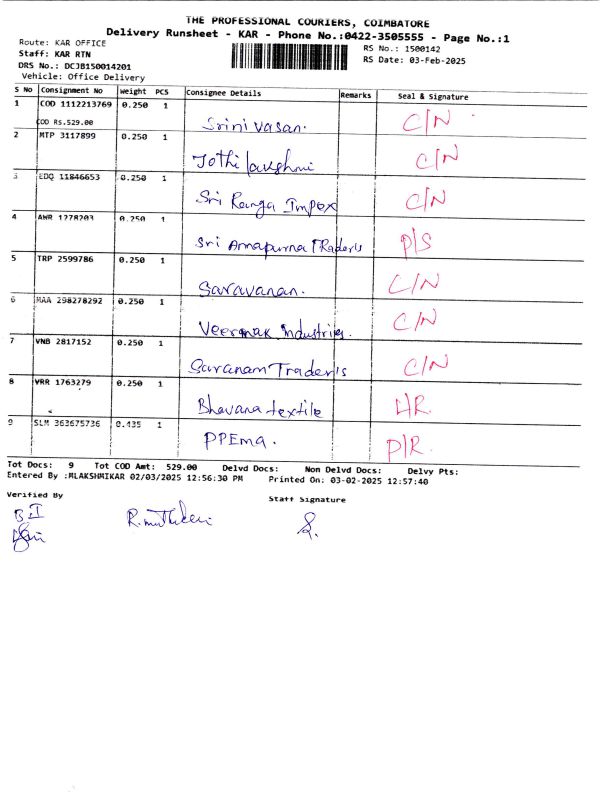 THE PROFESSIONAL COURIERS, COIMBATORE
Delivery Runsheet - KAR - Phone No.:0422-3505555 - Page No.:1
Route: KAR OFFICE
RS No.: 1500142
Staff: KAR RTN
RS Date: 03-Feb-2025
DRS No.: DCJB150014201
Vehicle: Office Delivery
S No Consignment No Weight PCS Consignee Details Remarks Seal & Signature
1 COD 1112213769 0.250 1 Srinivasan. C/N
COD RS.529.00
2 MTP 3117899 0.250 1 Jothilakshmi C/N
3 EDQ 11846653 0.250 1 Sri Ranga Impex C/N
4 AWR 1778203 0.250 1 Sri Annapurna Traders P/S
5 TRP 2599786 0.250 1 Saravanan. C/N
6 MAA 298278292 0.250 1 Industries. C/N
7 VNB 2817152 0.250 1 Saranam Traders C/N
8 VRR 1763279 0.250 1 Bhavana textile HR
9 SLM 363675736 0.435 1 PPEma. P/R
Tot Docs: 9 Tot COD Amt: 529.00 Delvd Docs: Non Delvd Docs: Delvy Pts:
Entered By :MLAKSHMIKAR 02/03/2025 12:56:30 PM Printed On: 03-02-2025 12:57:40
Verified By
Staff Signature